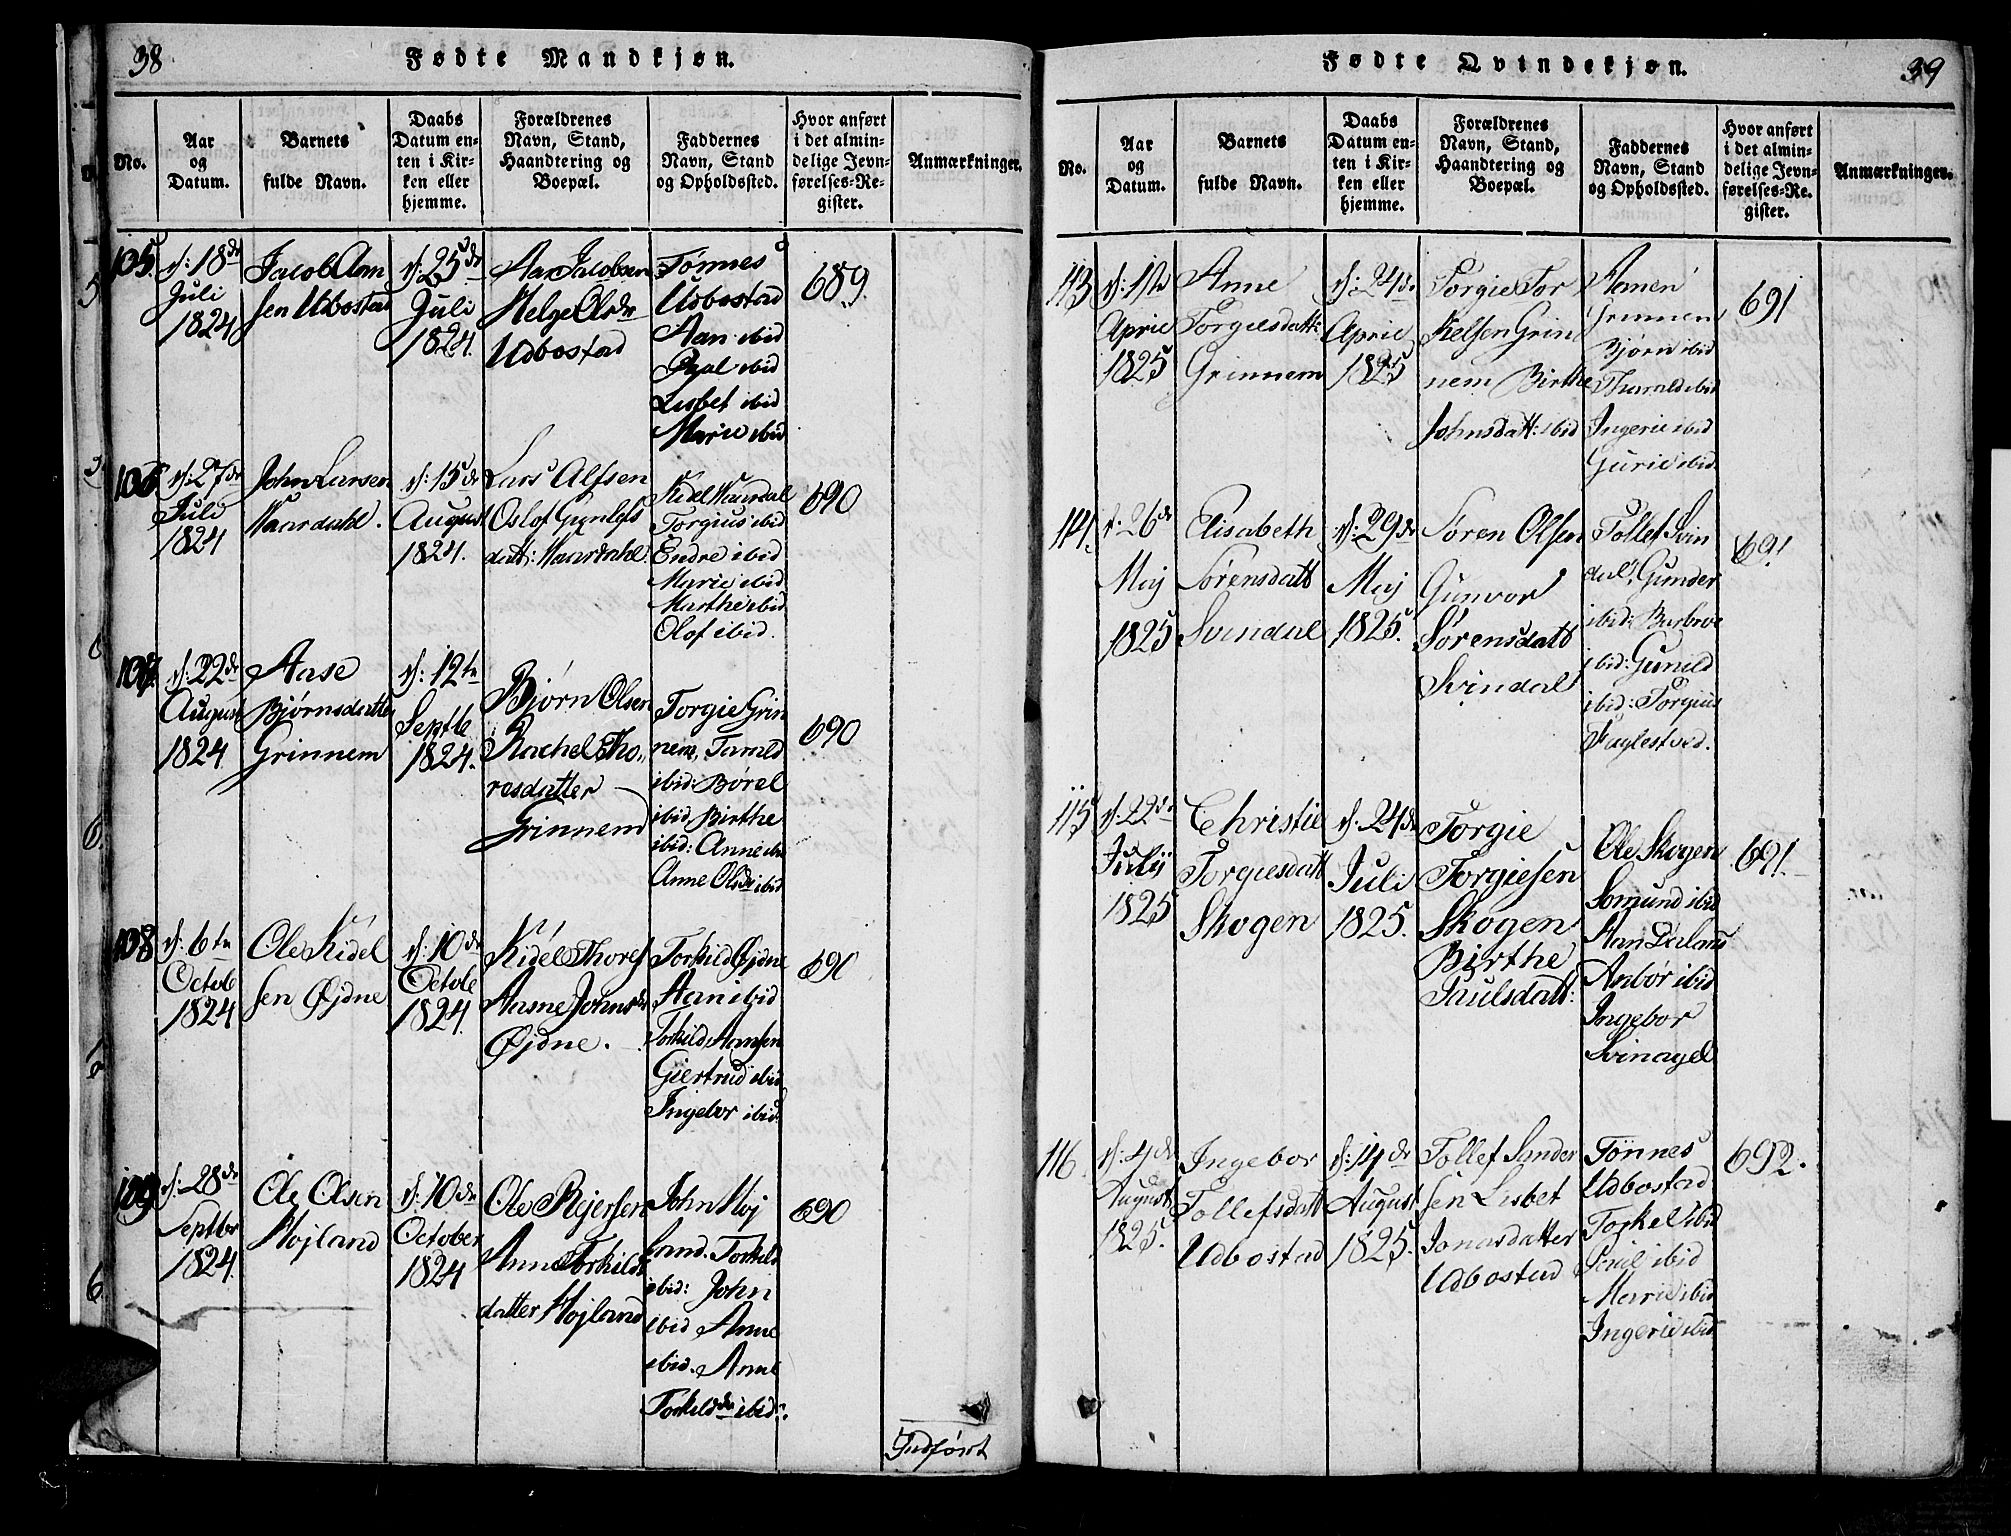 38
Fødte Mandkjøn.
No.
Aar
og
Datum.
Barnets
fulde Navn.
Daabs
Datum en-
ten i Kir-
ken eller
hjemme.
Forældrenes
Navn, Stand,
Haandtering og
Boepæl.
Faddernes
Navn, Stand
og Opholdssted.
Hvor anført
i det almin-
delige Jevn-
førelses-Re-
gister.
Anmærkninger.
105.
d: 18de
Juli
1824
Jacob Aan
sen Udbostad
d: 25de
Juli
1824.
Aan Jacobsen
Helge Olsdr
Udbostad
Tönnes
Udbostad
Aan ibid
Lisbet ibid
Marie ibid
689.
106
d: 27de
Juli
1824
John Larsen
Haardahl.
d: 15de
August
1824.
Lars Alfsen
Oslof Gunlefs
datt: Haardahl
Kidel Haardal
Torgius ibid
Endre ibid
Marie ibid
Marthe ibid
Olof ibid.
690
107.
d: 22de
August
1824
Aase
Bjørnsdatter
Grinnem
d: 12te
Septb
1824.
Bjørn Olsen
Rachel Tho-
resdatter
Grinnem
Torgie Grin
nem, Tarald
ibid: Børel
ibid, Birthe
ibid: Anne ibid
Anne Olsdr ibid
690
108
d: 6te
Octob
1824
Ole Kidel
sen Øjdne
d: 10de
Octob
1824.
Kidel Thores
Aasne Johnsdr
Øjdne.
Torkild Øjdne
Aan ibid
Torkild Aansen
Giertrud ibid
Ingebor ibid.
690
109.
d: 28de
Septbr
1824.
Ole Olsen
Højland
d: 10de
October
1824
Ole Rejersen
Anne Torkilds
datter Højland
John Høj
land. Torkild
ibid: John
ibid Anne
ibid. Anne
Torkildsdr ibid.
690
Indført
39
Fødte Qvindekjøn.
No.
Aar
og
Datum.
Barnets
fulde Navn.
Daabs
Datum en-
ten i Kir-
ken eller
hjemme.
Forældrenes
Navn, Stand,
Haandtering og
Boepæl.
Faddernes
Navn, Stand
og Opholdssted.
Hvor anført
i det almin-
delige Jevn-
førelses-Re-
gister.
Anmærkninger.
113.
April
1825
Anne
Torgiesdatt:
Grinnem
d: 24de
April
1825
Torgie Tor
kelsen Grin
nem Birthe
Johnsdatt: ibid
Aanen
Grinnem
Bjørn ibid
Tharald ibid
Ingerie ibid
Gurie ibid
691
114.
d: 26de
Maj
1825
Elisabeth
Sørensdatt
Svindal
d: 29de
Maj
1825.
Søren Olsen
Gunvor
Sørensdatt
Svindal
Tollef Svin
dal, Gunder
ibid: Barbroe
ibid: Gunild
ibid: Torgius
Fuglestved.
691
115
d: 22de
Julij
1825
Christie
Torgiesdatt
Skogen
d: 24de
Juli
1825.
Torgie
Torgiesen
Skogen
Birthe
Paulsdatt:
Ole Skogen
Aomund ibid
Aan
Anbør ibid
Ingebor
Svinagel
691.
116
d: 4de
August
1825.
Ingebor
Tollefsdatt
Udbostad
d: 14de
August
1825.
Tollef Sander
sen Lisbet
Jonasdatter
Udbostad
Tönnes
Udbostad
Torkel ibid
Paul ibid
Marie ibid
Ingerie ibid
692.